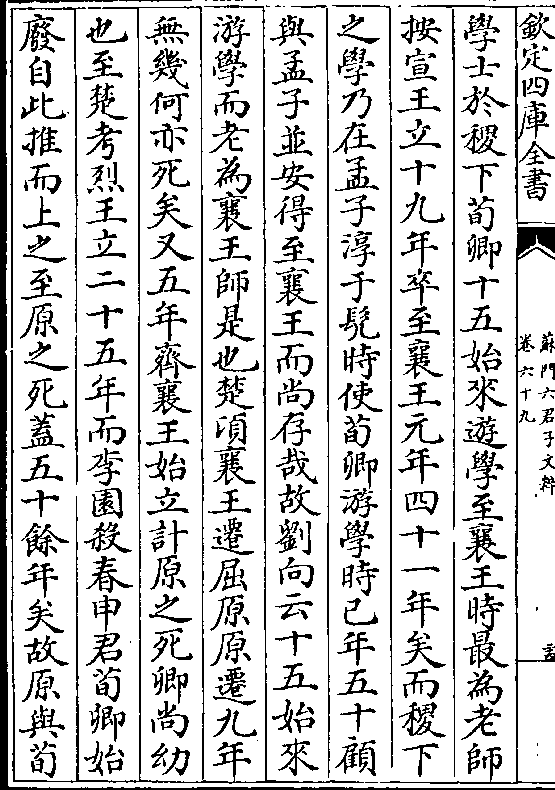 欽定四庫全書
蘇門六君子文粹
卷六十九
學士於稷下荀卿十五始來遊學至襄王時最為老師
按宣王立十九年卒至襄王元年四十一年矣而稷下
之學乃在孟子淳于髠時使荀卿游學時已年五十顧
與孟子並安得至襄王而尚存哉故劉向云十五始來
游學而老為襄王師是也楚頃襄王遷屈原原遷九年
無幾何亦死矣又五年齊襄王始立計原之死卿尚幼
也至楚考烈王立二十五年而李園殺春申君荀卿始
廢自此推而上之至原之死蓋五十餘年矣故原與荀